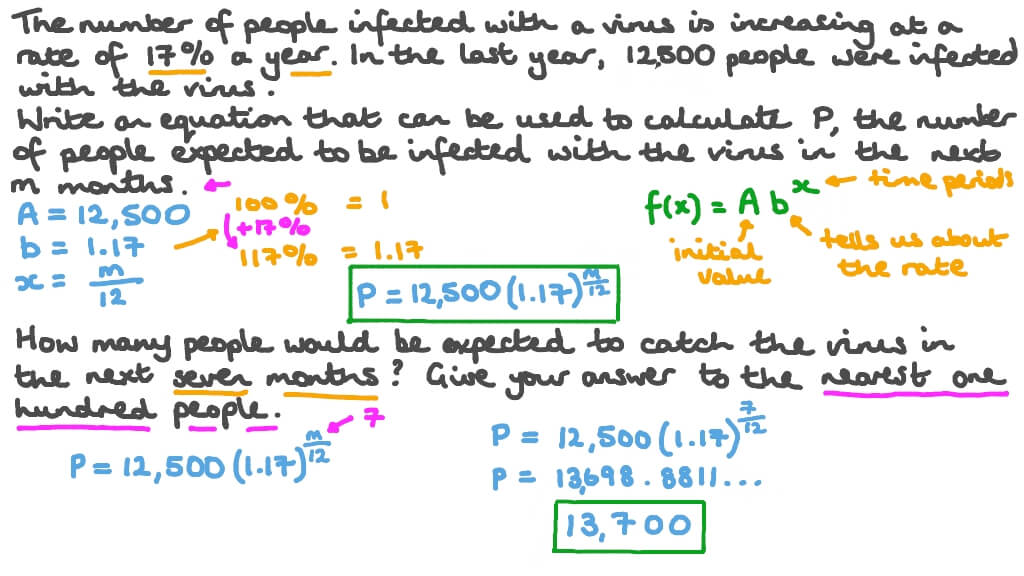 The number of people infected with a virus is increasing at a
rate of 17% a year. In the last year, 12,500 people were infected
with the virus.
Write an equation that can be used to calculate P, the number
of people expected to be infected with the virus in the next
m months.
A = 12,500
b = 1.17
x = m/12
100% = 1
+17%
117% = 1.17
f(x) = A b^x
time periods
initial
value
tells us about
the rate
P = 12,500 (1.17)^(m/12)
How many people would be expected to catch the virus in
the next seven months? Give your answer to the nearest one
hundred people.
7
P = 12,500 (1.17)^(m/12)
P = 12,500 (1.17)^(7/12)
P = 13,698.8811...
13,700